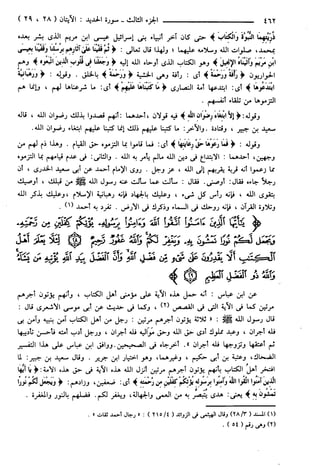 ٤٦٢ الجزء الثالث - سورة الحديد : الآيتان ( ٢٨ ، ٢٩ )
ذريتهما النبوة والكتاب ﴾ حتى كان آخر أنبياء بني إسرائيل عيسى ابن مريم الذي بشر بعده
بمحمد، صلوات الله وسلامه عليهما ؛ ولهذا قال تعالى : ﴿ ثم قفينا على آثارهم برسلنا وقفينا بعيسى
ابن مريم وآتيناه الإنجيل ﴾ وهو الكتاب الذي أوحاه الله إليه ﴿ وجعلنا في قلوب الذين اتبعوه ﴾ وهم
الحواريون ﴿ رأفة ورحمة ﴾ أي : رأفة وهي الخشية ﴿ ورحمة ﴾ بالخلق . وقوله : ﴿ ورهبانية
ابتدعوها ﴾ أي : ابتدعتها أمة النصارى ﴿ ما كتبناها عليهم ﴾ أي : ما شرعناها لهم ، وإنما هم
التزموها من تلقاء أنفسهم .
وقوله : ﴿ إلا ابتغاء رضوان الله ﴾ فيه قولان ، أحدهما : أنهم قصدوا بذلك رضوان الله ، قاله
سعيد بن جبير ، وقتادة . والآخر : ما كتبنا عليهم ذلك إنما كتبنا عليهم ابتغاء رضوان الله .
وقوله : ﴿ فما رعوها حق رعايتها ﴾ أي : فما قاموا بما التزموه حق القيام . وهذا ذم لهم من
وجهين، أحدهما : الابتداع في دين الله مالم يأمر به الله . والثاني : في عدم قيامهم بما التزموه
مما زعموا أنه قربة يقربهم إلى الله ، عز وجل . وروى الإمام أحمد عن أبي سعيد الخدري ، أن
رجلاً جاءه فقال : أوصني . فقال : سألت عما سألت عنه رسول الله ﷺ من قبلك ، أوصيك
بتقوى الله ، فإنه رأس كل شيء ، وعليك بالجهاد فإنه رهبانية الإسلام ، وعليك بذكر الله
وتلاوة القرآن ، فإنه روحك في السماء وذكرك في الأرض . تفرد به أحمد (١) .
﴿ يا أيها الذين آمنوا اتقوا الله وآمنوا برسوله يؤتكم كفلين من رحمته
ويجعل لكم نورا تمشون به ويغفر لكم والله غفور رحيم لئلا يعلم أهل
الكتاب ألا يقدرون على شيء من فضل الله وأن الفضل بيد الله يؤتيه من يشاء
والله ذو الفضل العظيم ﴾
عن ابن عباس : أنه حمل هذه الآية على مؤمني أهل الكتاب ، وأنهم يؤتون أجرهم
مرتين كما في الآية التي في القصص (٢) . وكما في حديث عن أبي موسى الأشعري قال :
قال رسول الله ﷺ : « ثلاثة يؤتون أجرهم مرتين : رجل من أهل الكتاب آمن بنبيه وآمن بي
فله أجران ، وعبد مملوك أدى حق الله وحق مواليه فله أجران ، ورجل أدب أمته فأحسن تأديبها
ثم أعتقها وتزوجها فله أجران » . أخرجاه في الصحيحين . ووافق ابن عباس على هذا التفسير
الضحاك، وعتبة بن أبي حكيم ، وغيرهما، وهو اختيار ابن جرير . وقال سعيد بن جبير : لما
افتخر أهل الكتاب بأنهم يؤتون أجرهم مرتين أنزل الله هذه الآية في حق هذه الأمة : ﴿ يا أيها
الذين آمنوا اتقوا الله وآمنوا برسوله يؤتكم كفلين من رحمته ﴾ أي : ضعفين، وزادهم : ﴿ ويجعل لكم نورا
تمشون به ﴾ يعني : هدى يتبصر به من العمى والجهالة، ويغفر لكم . ففضلهم بالنور والمغفرة .
(١) المسند (٢٨/٣) وقال الهيثمي في الزوائد (٢١٥/٤) : « رجال أحمد ثقات » .
(٢) وهي رقم (٥٤) .